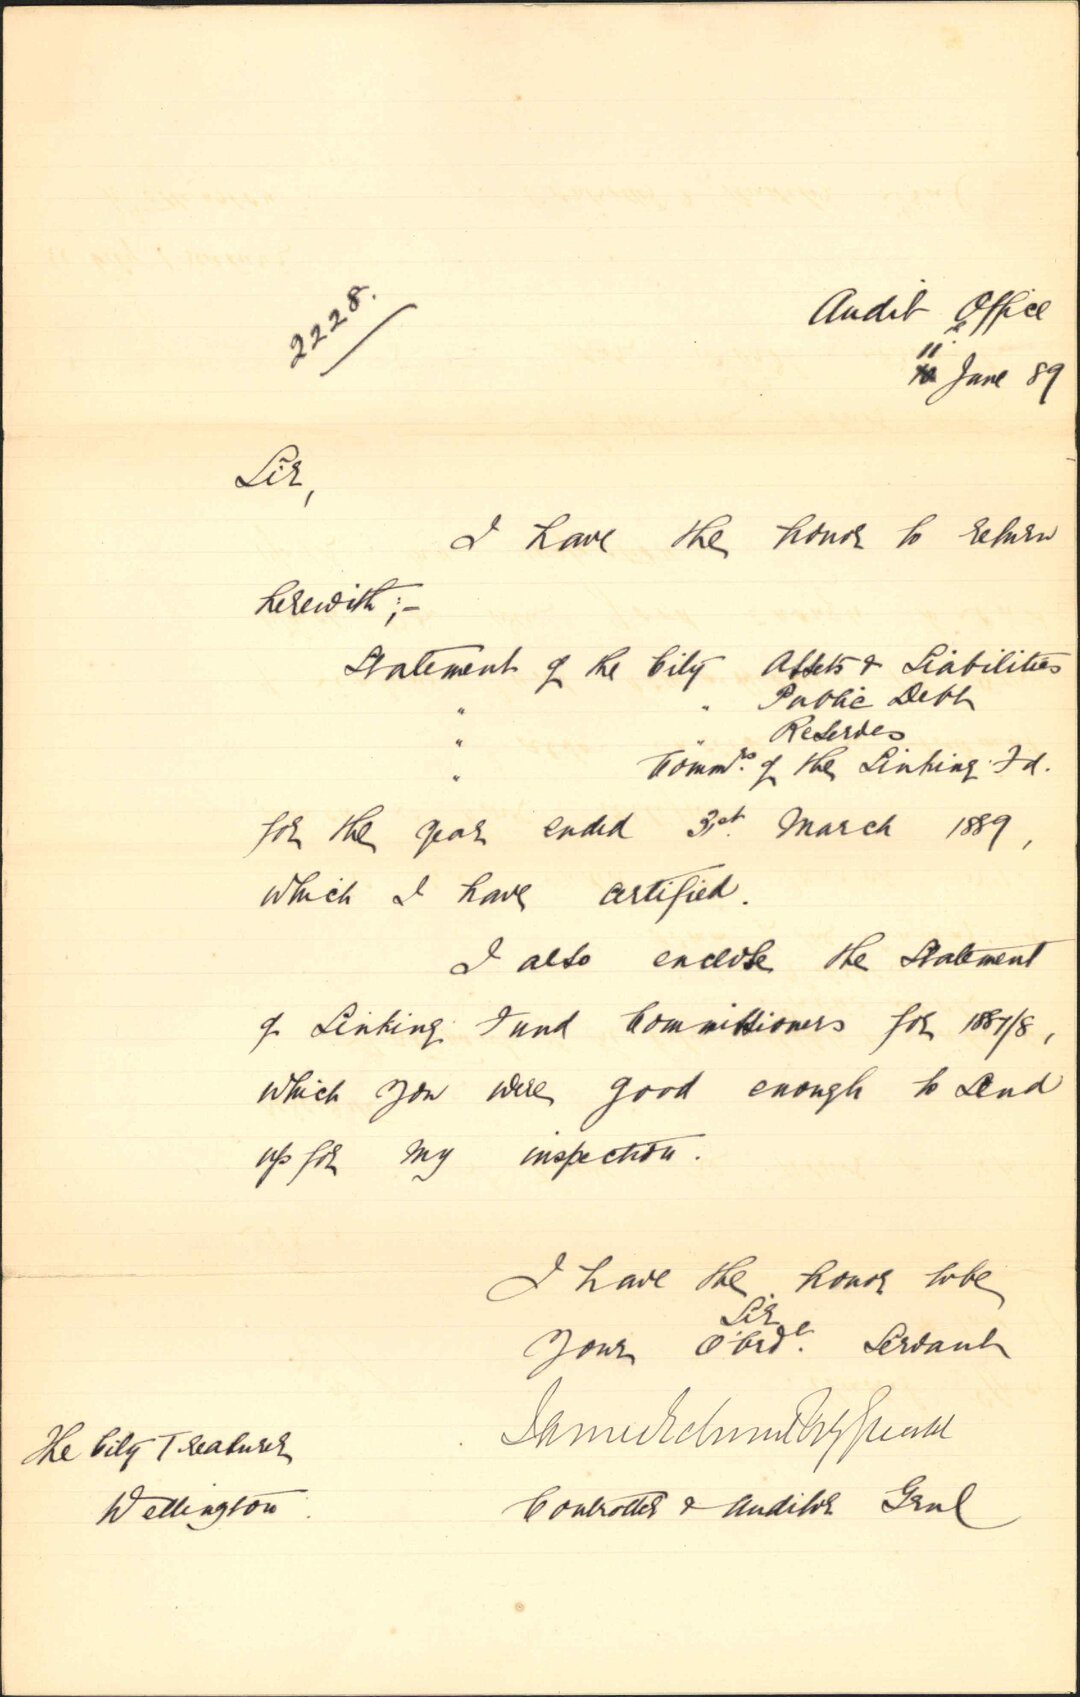 2228.
Audit Office
11 June 89
Sir,
I have the honor to return
herewith ;-
Statement of the City Assets & Liabilities
" " Public Debt
" " Reserves
" Commrs. of the Sinking Fd.
for the year ended 31st. March 1889,
which I have certified.
I also enclose the Statement
of Sinking Fund Commissioners for 1887/8,
which you were good enough to send
up for my inspection.
I have the honor to be
Sir
Your Obedt. Servant
James Edward FitzGerald
Controller & Auditor Genl
The City Treasurer
Wellington